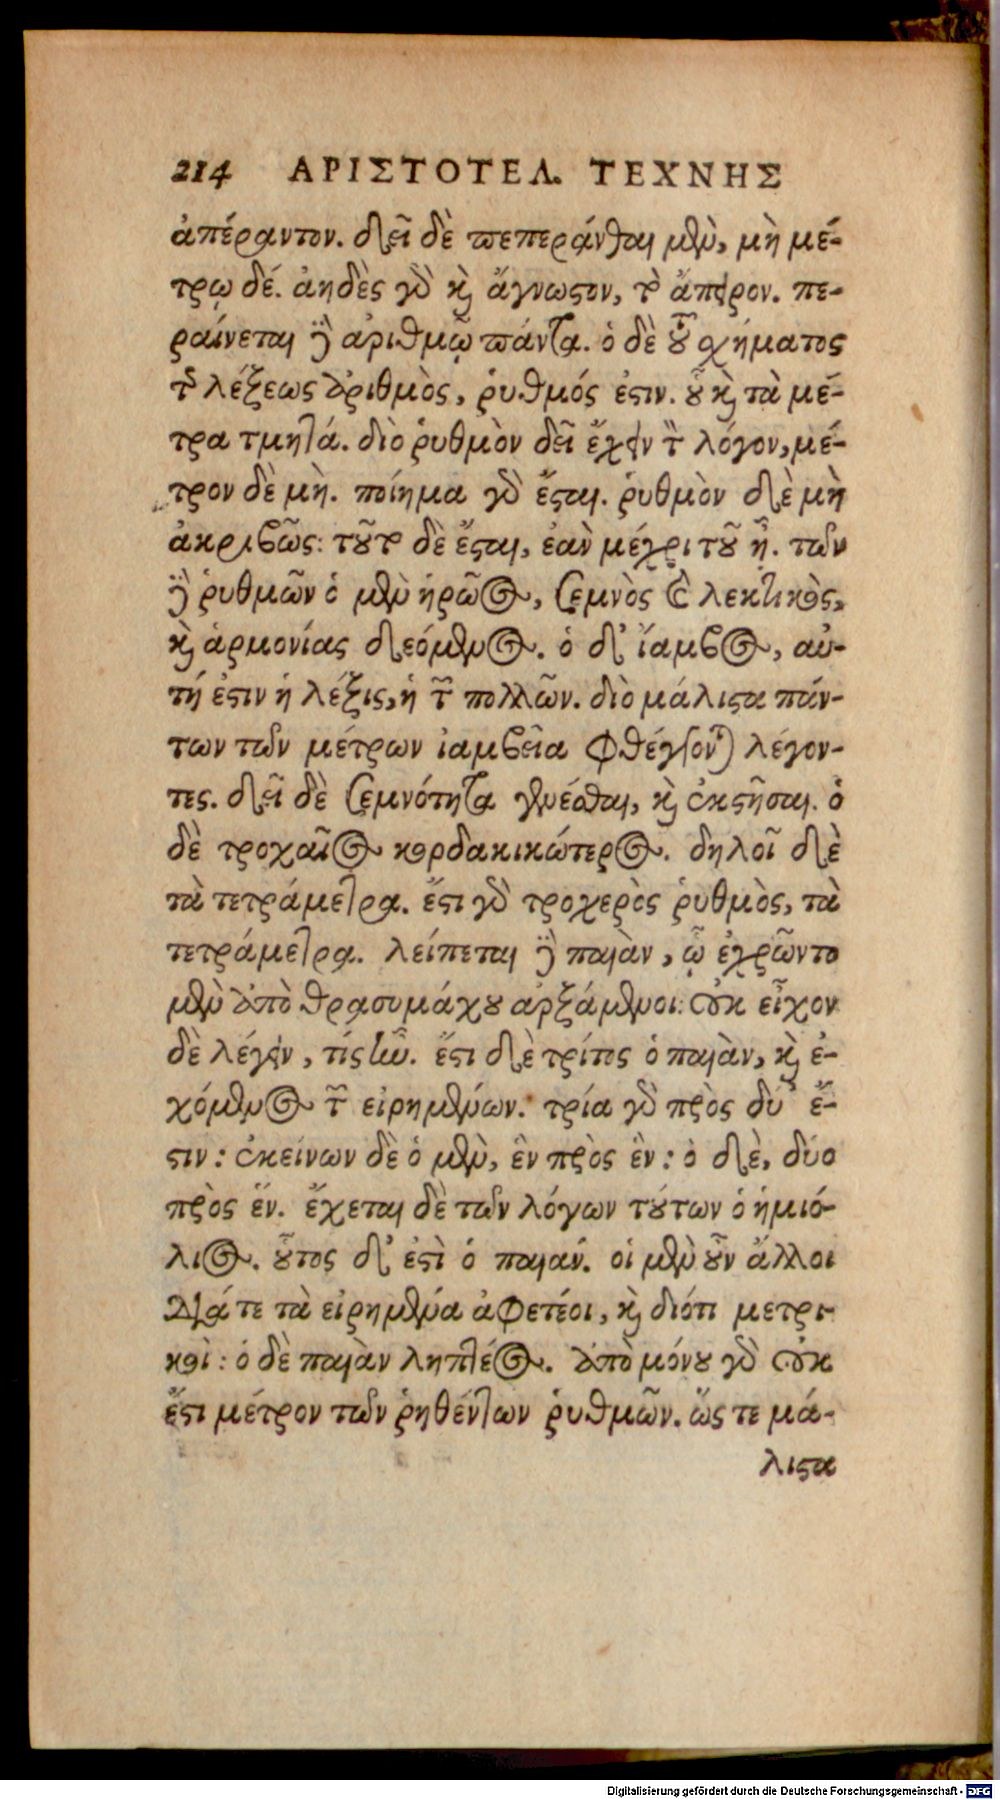 214 ΑΡΙΣΤΟΤΕΛ. ΤΕΧΝΗΣ
ἀπέραντον. δεῖ δὲ πεπεράνθαι μὲν, μὴ μέ-
τρῳ δέ. ἀηδὲς γὸ κỳ ἄγνωϛον, τὸ ἄπειρον. πε-
ραίνεται δὲ ἀριθμῷ πάντα. ὁ δὲ τοῦ σχήματος
τῆς λέξεως ἀριθμὸς, ῥυθμός ἐϛιν. οὗ καὶ τὰ μέ-
τρα τμητά. διὸ ῥυθμὸν δεῖ ἔχειν τὸν λόγον, μέ-
τρον δὲ μὴ. ποίημα γὰρ ἔϛαι. ῥυθμὸν δὲ μὴ
ἀκριβῶς: τοῦτο δὲ ἔϛαι, ἐὰν μέχρι τοῦ ᾖ. τῶν
δὲ ῥυθμῶν ὁ μὲν ἡρῶος, σεμνὸς καὶ λεκτικὸς,
καὶ ἁρμονίας δεόμενος. ὁ δ' ἴαμβος, αὐ-
τή ἐϛιν ἡ λέξις, ἡ τῶν πολλῶν. διὸ μάλιϛα πάν-
των τῶν μέτρων ἰαμβεῖα φθέγγονται λέγον-
τες. δεῖ δὲ σεμνότητα γενέσθαι, καὶ ἐκϛῆσαι. ὁ
δὲ τροχαῖος κορδακικώτερος. δηλοῖ δὲ
τὰ τετράμετρα. ἔϛι γὰρ τροχερὸς ῥυθμὸς, τὰ
τετράμετρα. λείπεται δὲ παιὰν, ᾧ ἐχρῶντο
μὲν ἀπὸ Θρασυμάχου ἀρξάμενοι: οὐκ εἶχον
δὲ λέγειν, τίς ἦν. ἔϛι δὲ τρίτος ὁ παιὰν, καὶ ἐ-
χόμενος τῶν εἰρημένων. τρία γὰρ πρὸς δύ' ἔ-
ϛιν: ἐκείνων δὲ ὁ μὲν, ἓν πρὸς ἓν: ὁ δὲ, δύο
πρὸς ἕν. ἔχεται δὲ τῶν λόγων τούτων ὁ ἡμιό-
λιος. οὗτος δ' ἐϛὶ ὁ παιάν. οἱ μὲν οὖν ἄλλοι
διά τε τὰ εἰρημένα ἀφετέοι, καὶ διότι μετρι-
κοὶ: ὁ δὲ παιὰν ληπτέος. ἀπὸ μόνου γὰρ οὐκ
ἔϛι μέτρον τῶν ῥηθέντων ῥυθμῶν. ὥϛε μά-
λιϛα
Digitalisierung gefördert durch die Deutsche Forschungsgemeinschaft - DFG